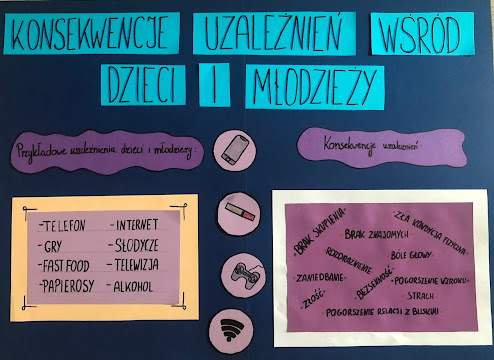 KONSEKWENCJE UZALEŻNIEŃ WŚRÓD
DZIECI I MŁODZIEŻY
Przykładowe uzależnienia dzieci i młodzieży:
-TELEFON
-GRY
-FAST FOOD
-PAPIEROSY
-INTERNET
-SŁODYCZE
-TELEWIZJA
-ALKOHOL
Konsekwencje uzależnień
-BRAK SKUPIENIA
-ZŁA KONDYCJA FIZYCZNA
-BRAK ZNAJOMYCH
-ROZDRAŻNIENIE
-BÓLE GŁOWY
-ZANIEDBANIE
-BEZSENNOŚĆ
-POGORSZENIE WZROKU
-ZŁOŚĆ
-STRACH
-POGORSZENIE RELACJI Z BLISKIMI